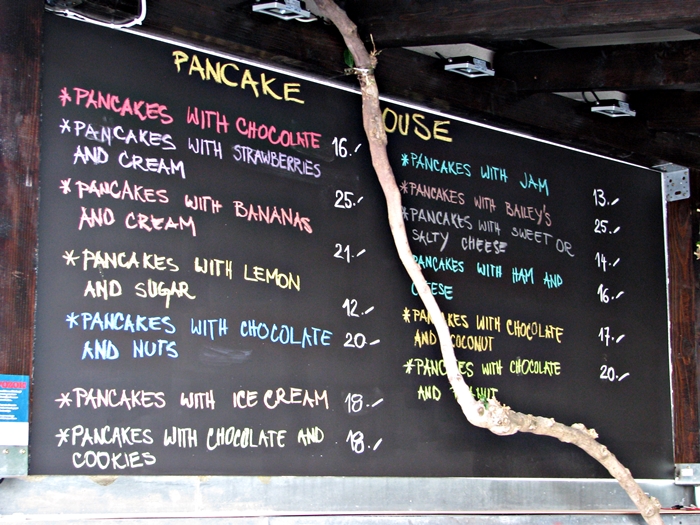 PANCAKE OUSE
*PANCAKES WITH CHOCOLATE 16.-
*PANCAKES WITH STRAWBERRIES
AND CREAM 25.-
*PANCAKES WITH BANANAS
AND CREAM 21.-
*PANCAKES WITH LEMON
AND SUGAR 12.-
*PANCAKES WITH CHOCOLATE
AND NUTS 20.-
*PANCAKES WITH ICE CREAM 18.-
*PANCAKES WITH CHOCOLATE AND
COOKIES 18.-
*PANCAKES WITH JAM 13.-
*PANCAKES WITH BAILEY'S 25.-
*PANCAKES WITH SWEET OR
SALTY CHEESE 14.-
PANCAKES WITH HAM AND
16.-
*PANCAKES WITH CHOCOLATE
AND COCONUT 17.-
*PANCAKES WITH CHOCOLATE
AND 20.-